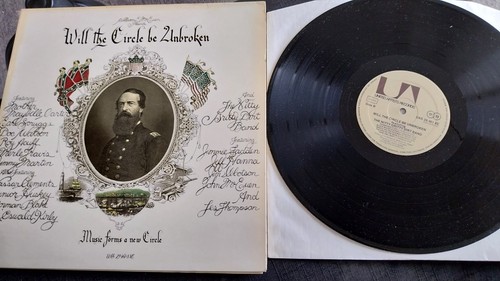 Will the Circle be Unbroken
Featuring
Mother
Maybelle Carter
Earl Scruggs
Doc Watson
Roy Acuff
Merle Travis
Jimmy Martin
Vassar Clements
Junior Huskey
Norman Blake
Oswald Kirby
And
The Nitty
Gritty Dirt
Band
Featuring
Jimmie Fadden
Jeff Hanna
Jim Ibbotson
John McEuen
And
Les Thompson
Music forms a new Circle
UNITED ARTISTS RECORDS
WILL THE CIRCLE BE UNBROKEN